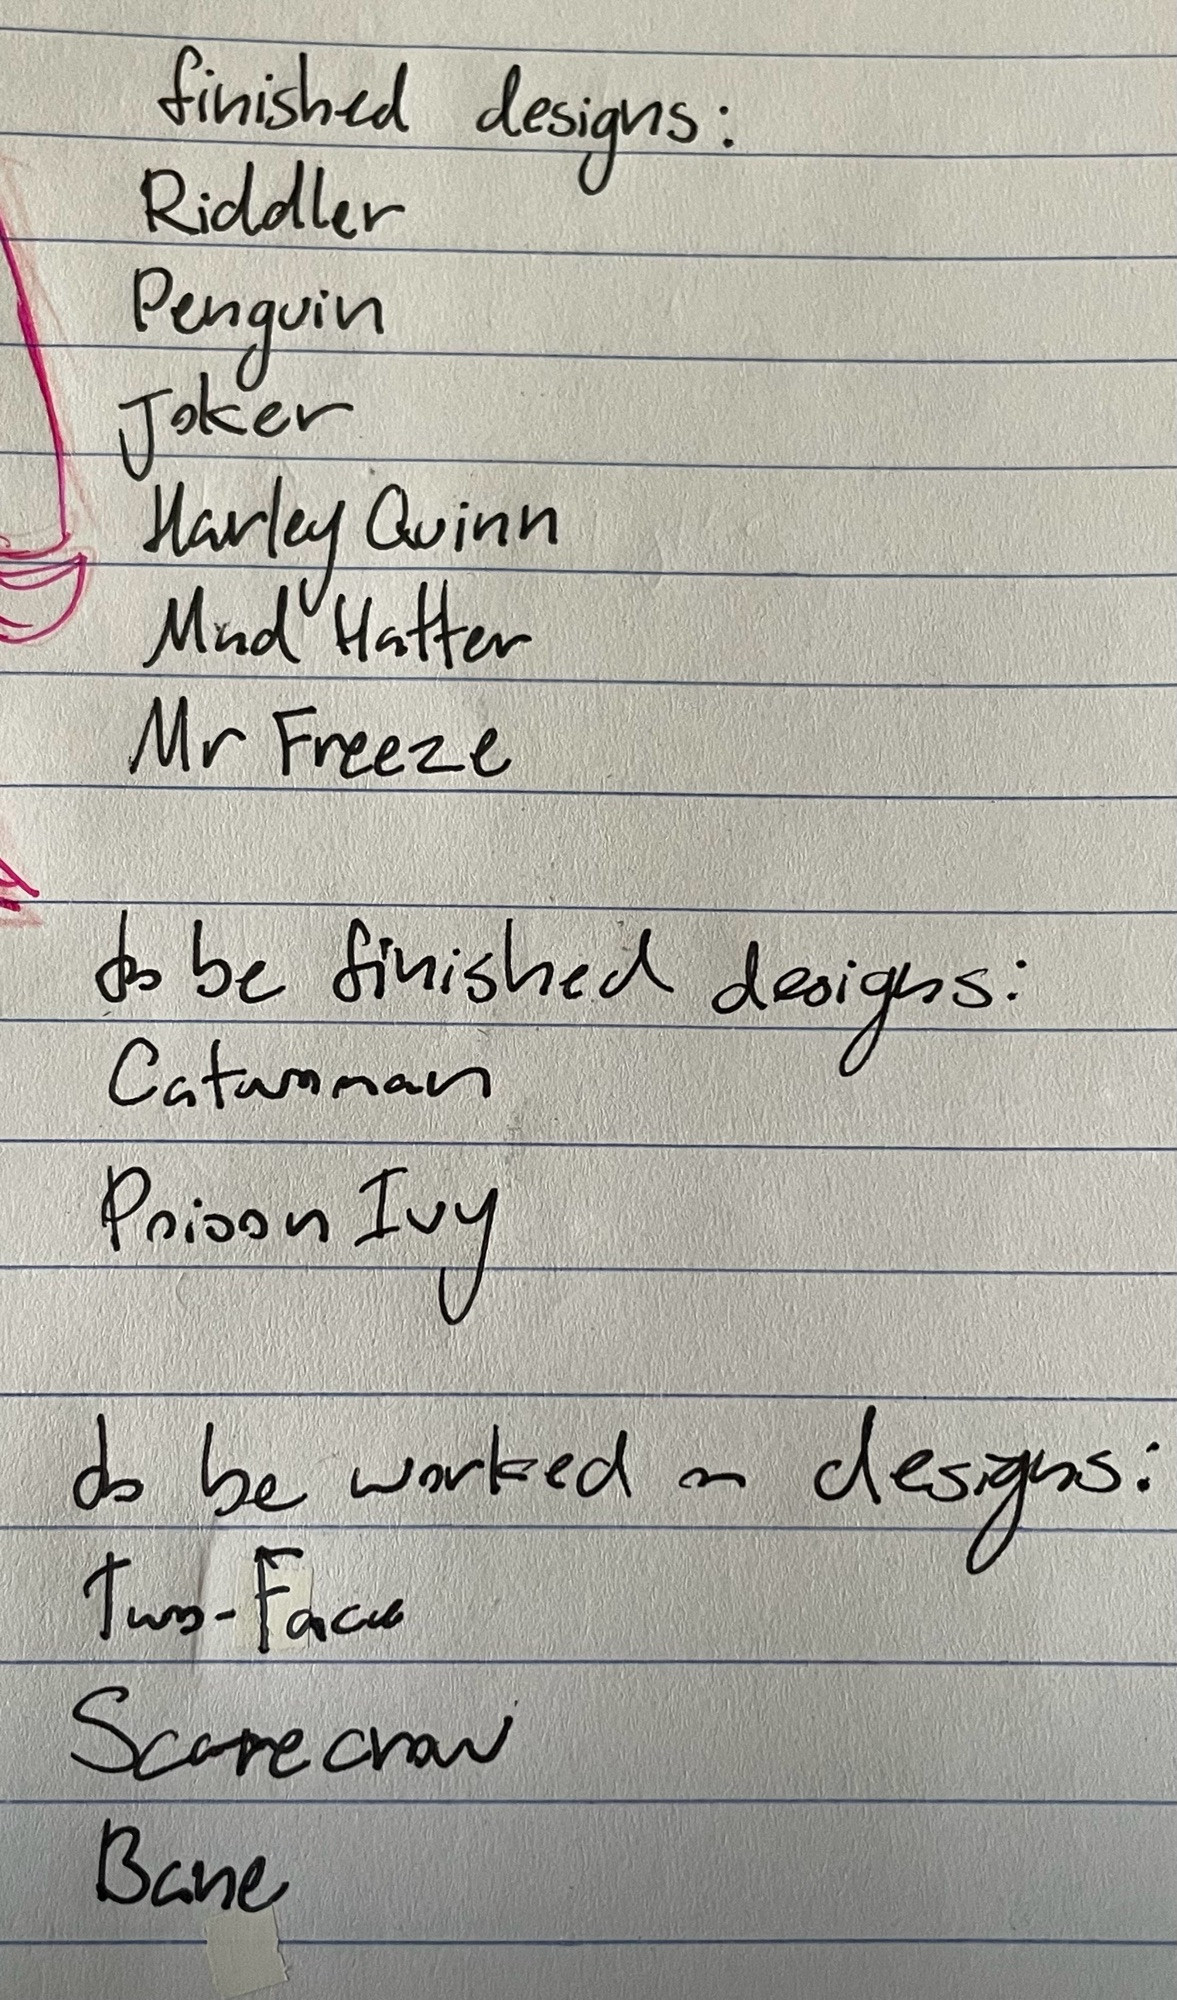 finished designs:
Riddler
Penguin
Joker
Harley Quinn
Mad Hatter
Mr Freeze
to be finished designs:
Catwoman
Poison Ivy
to be worked on designs:
Two-Face
Scarecrow
Bane